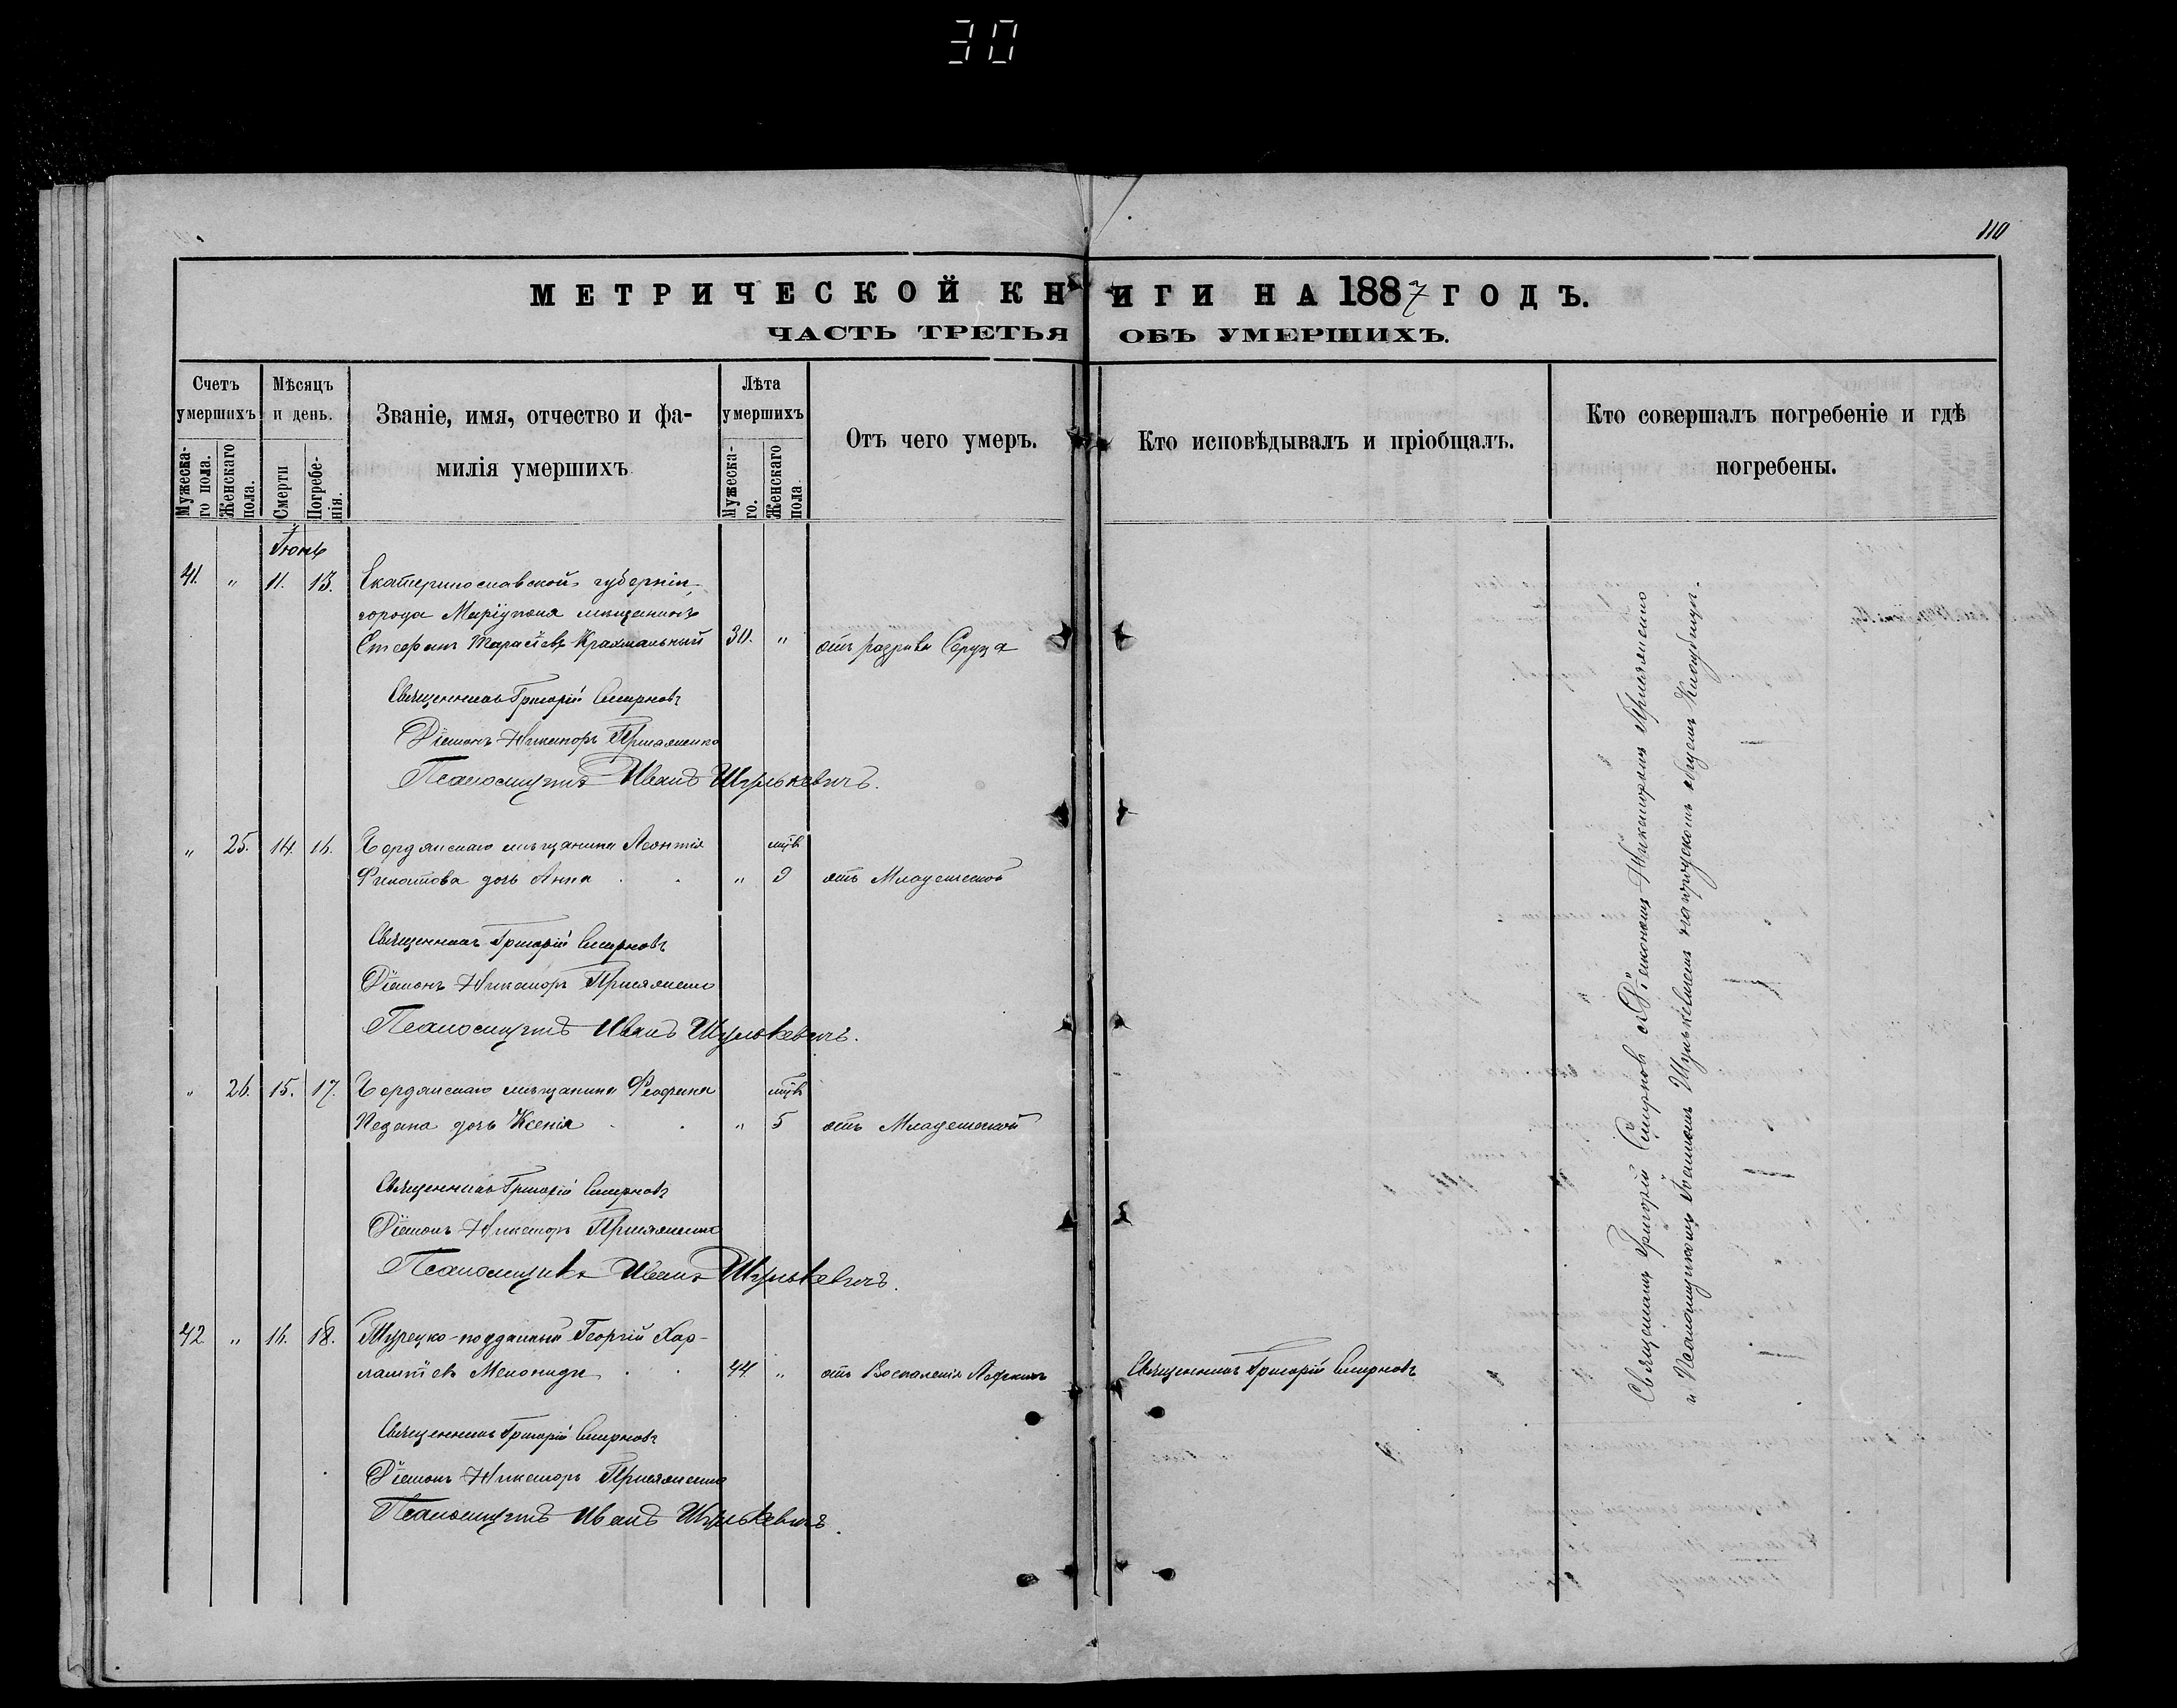 30
110
МЕТРИЧЕСКОЙ КНИГИ НА 1887 ГОДЪ.
ЧАСТЬ ТРЕТЬЯ ОБЪ УМЕРШИХЪ.
Счетъ умершихъ
Мужеска-го пола.
Женскаго пола.
Мѣсяцъ и день.
Смерти
Погребе-нія.
Званіе, имя, отчество и фа-
милія умершихъ
Лѣта умершихъ
Мужеска-го.
Женскаго пола.
Отъ чего умеръ.
Кто исповѣдывалъ и пріобщалъ.
Кто совершалъ погребеніе и гдѣ
погребены.
Іюнь
41. " 11. 13. Екатеринославской губерніи,
города Маріуполя мѣщанинъ
Стефанъ Тарасіевъ Крахмальный 30. " отъ разрыва Сердца
Священникъ Григорій Смирновъ
Діаконъ Никаноръ
Псаломщикъ Иванъ Шулькевичъ.
" 25. 14. 16. Бердянскаго мѣщанина Леонтія
Филатова дочь Анна " 9 отъ Младенческой
Священникъ Григорій Смирновъ
Діаконъ Никаноръ
Псаломщикъ Иванъ Шулькевичъ.
" 26. 15. 17. Бердянскаго мѣщанина
дочь Ксенія " 5 отъ Младенческой
Священникъ Григорій Смирновъ
Діаконъ Никаноръ
Псаломщикъ Иванъ Шулькевичъ.
42 " 16. 18. Турецко-подданный Георгій Хар-
лампіевъ 44. " отъ Воспаленія Легкихъ Священникъ Григорій Смирновъ
Священникъ Григорій Смирновъ
Діаконъ Никаноръ
Псаломщикъ Иванъ Шулькевичъ.
Священникъ Григорій Смирновъ съ Діакономъ Никаноромъ
и Псаломщикомъ Іоанномъ Шулькевичемъ на городскомъ общемъ Кладбищѣ.